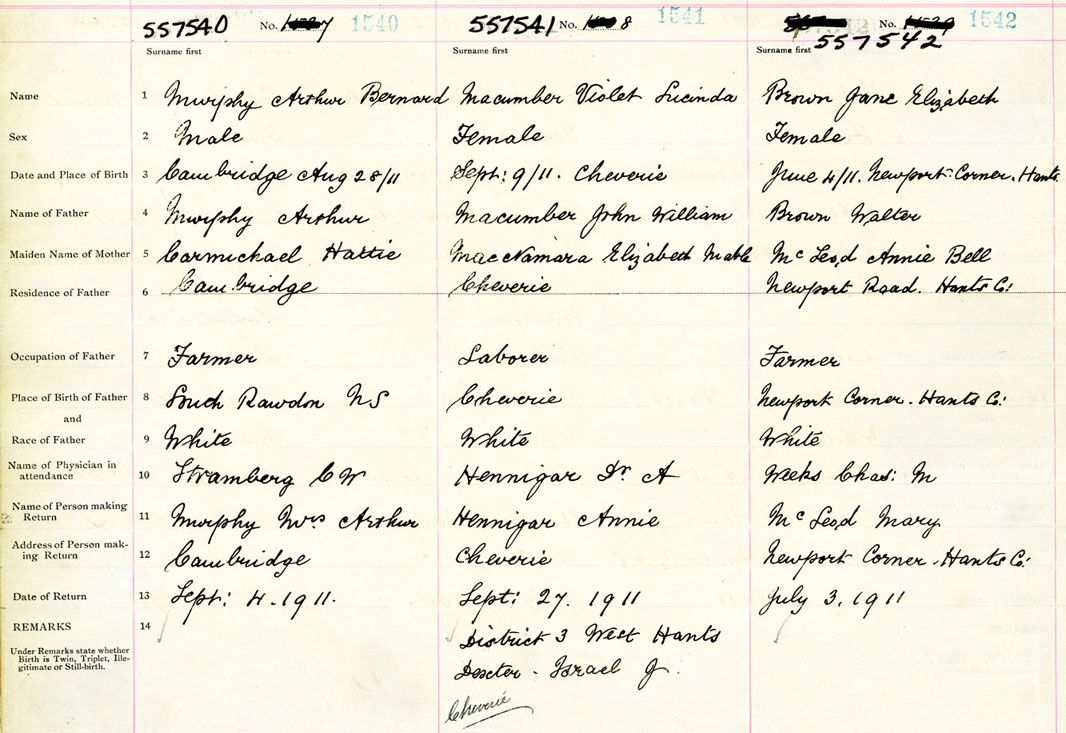 557540 No. 1540 557541 No. 8 1541 No. 1542
Surname first Surname first Surname first 557542
Name 1 Murphy Arthur Bernard Macumber Violet Lucinda Brown Jane Elizabeth
Sex 2 Male Female Female
Date and Place of Birth 3 Cambridge Aug 28/11 Sept: 9/11. Cheverie June 4/11. Newport Corner. Hants
Name of Father 4 Murphy Arthur Macumber John William Brown Walter
Maiden Name of Mother 5 Carmichael Hattie MacNamara Elizabeth Mable McLeod Annie Bell
Residence of Father 6 Cambridge Cheverie Newport Road. Hants Co:
Occupation of Father 7 Farmer Laborer Farmer
Place of Birth of Father 8 South Rawdon NS Cheverie Newport Corner. Hants Co:
and
Race of Father 9 White White White
Name of Physician in
attendance 10 Stramberg C W Hennigar Dr A Weeks Chas: M
Name of Person making
Return 11 Murphy Mrs Arthur Hennigar Annie McLeod Mary
Address of Person mak-
ing Return 12 Cambridge Cheverie Newport Corner. Hants Co:
Date of Return 13 Sept: 4. 1911. Sept: 27. 1911 July 3. 1911
REMARKS 14
District 3 West Hants
Under Remarks state whether
Birth is Twin, Triplet, Ille-
gitimate or Still-birth.
Dexter - Israel J.
Cheverie